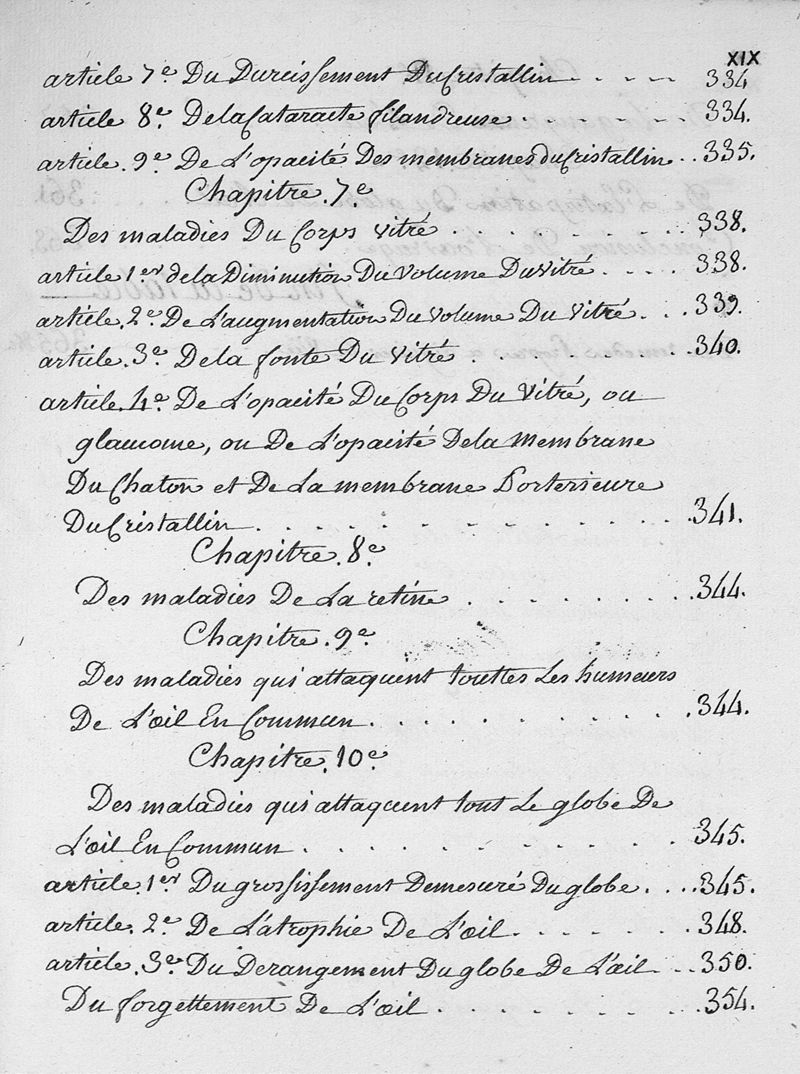 XIX
article 7e Du Durcissement Du Cristallin . . . . 334
article 8e De la Cataracte filandreuse . . . . . . . 334.
article . 9e De L'opacité Des membranes du Cristallin . . 335.
Chapitre . 7e
Des maladies Du Corps vitré . . . . . . . . . 338.
article 1er de la Diminution Du volume Du vitré . . . . 338.
article . 2e De L'augmentation Du volume Du Vitré . . . 339.
article . 3e De la fonte Du vitré . . . . . . . . 340.
article . 4e De L'opacité Du Corps Du Vitré, ou
glaucome, ou De L'opacité De la Membrane
Du Chaton et De La membrane Posterieure
Du Cristallin . . . . . . . . . . . . . 341.
Chapitre . 8e
Des maladies De La retine . . . . . . . . 344.
Chapitre . 9e
Des maladies qui attaquent touttes Les humeurs
De L'œil En Commun . . . . . . . . . . 344.
Chapitre . 10e
Des maladies qui attaquent tout Le globe De
L'œil En Commun . . . . . . . . . . . . 345.
article . 1er Du grossissement Demesuré Du globe . . . . 345.
article . 2e De L'atrophie De L'œil . . . . . . 348.
article . 3e Du Derangement Du globe De L'œil . . 350.
Du forgettement De L'œil . . . . . . . . 354.